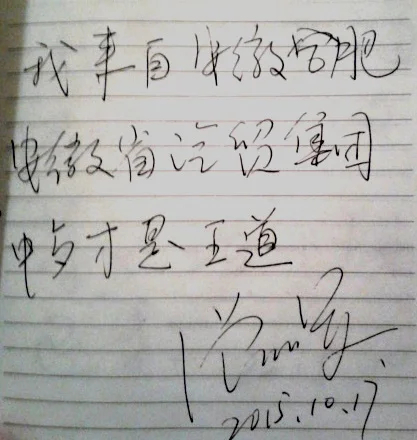 我来自安徽合肥
安徽省汽贸集团
才是王道
2015.10.17